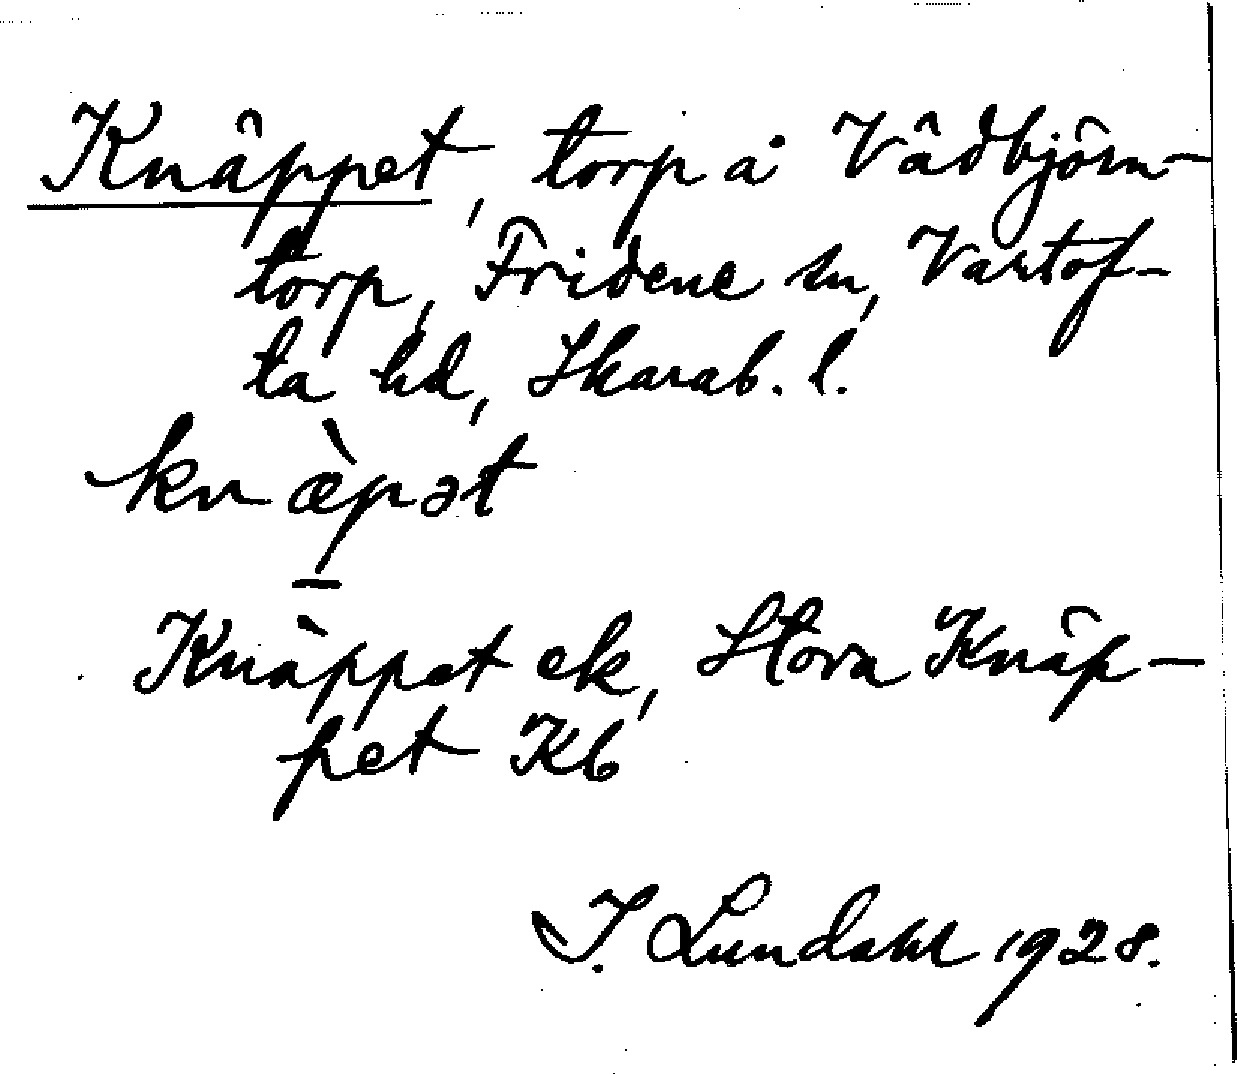 Knäppet, torp å Vädbjörn-
torp, Fridene sn, Vartof-
ta hd, Skarab. l.
knæ̀pət
Knäppet ek, Stora Knäp-
pet Kb
I. Lundahl 1928.